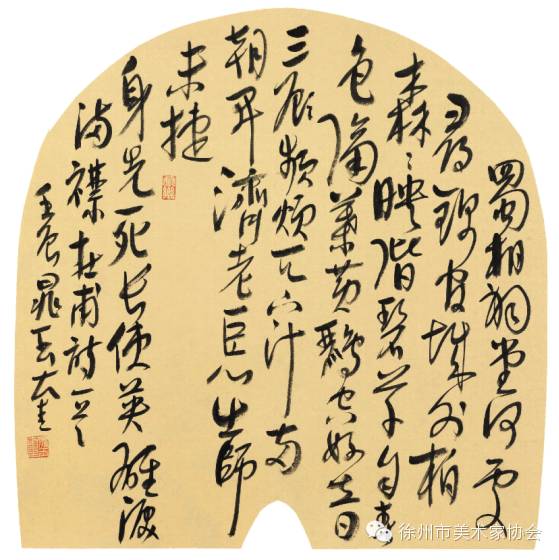 蜀相祠堂何處
尋錦官城外柏
森〻映階碧草自春
色隔葉黄鸝空好音
三顧頻煩天下計兩
朝開濟老臣心出師
未捷
身先死長使英雄淚
滿襟杜甫詩一首
壬辰
徐州市美术家协会